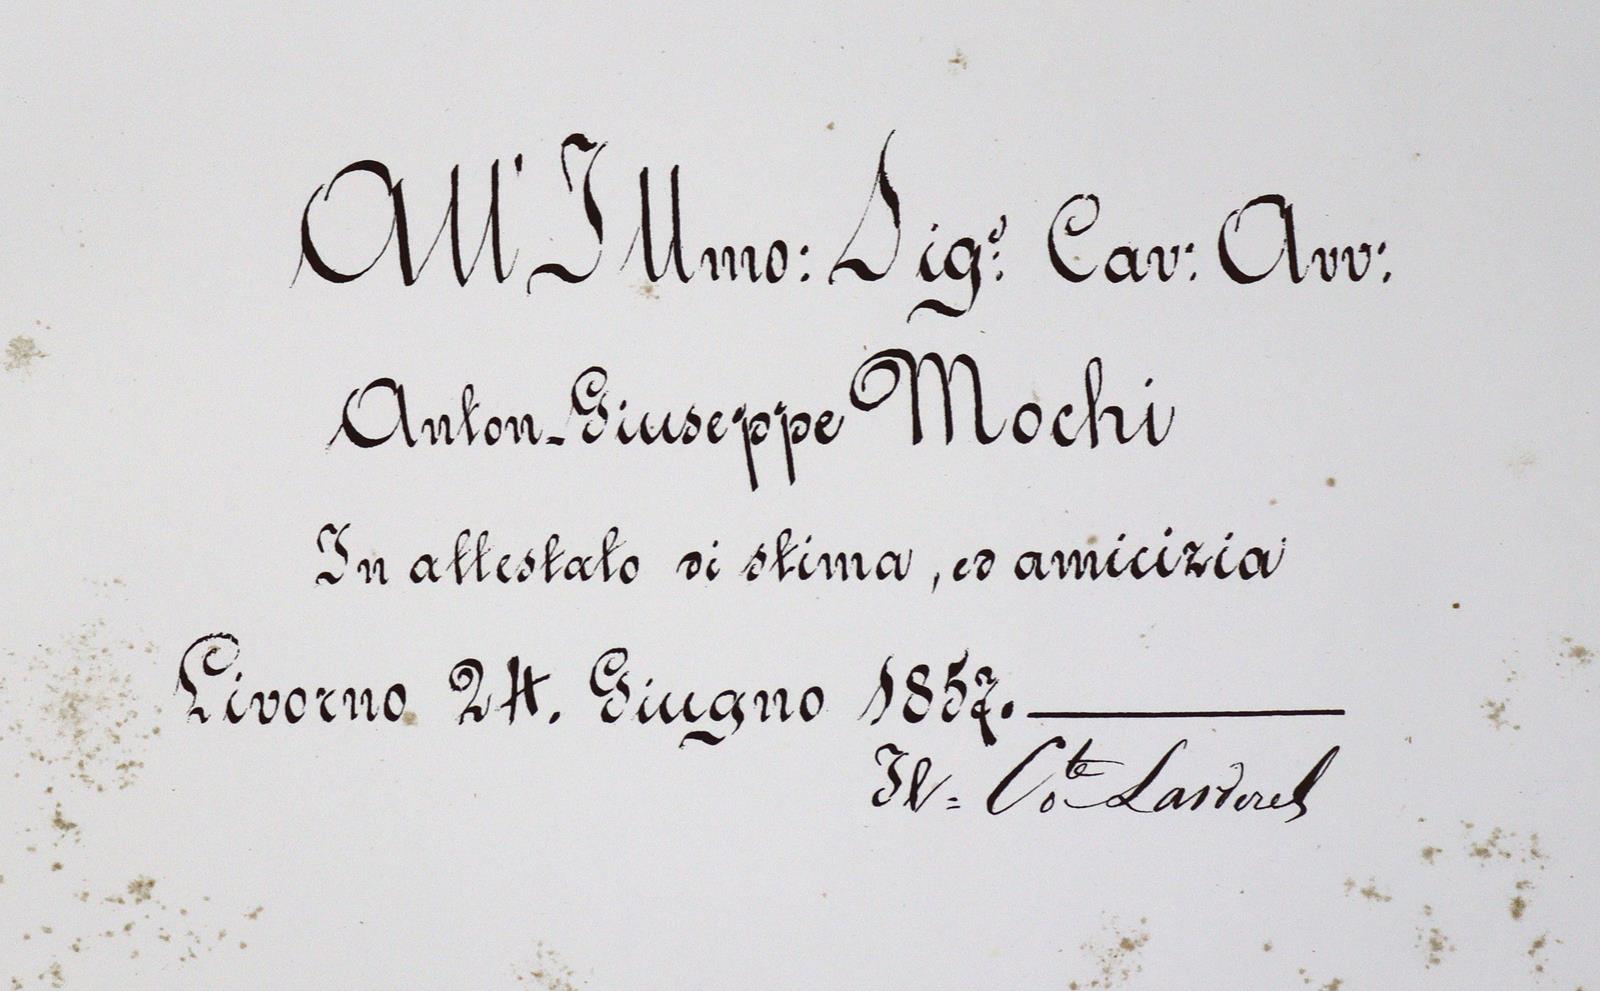 All'Illmo: Sigʳ: Cav: Avv:
Anton-Giuseppe Mochi
In attestato di stima, ed amicizia
Livorno 24. Giugno 1857.
Il= Cote Larderel